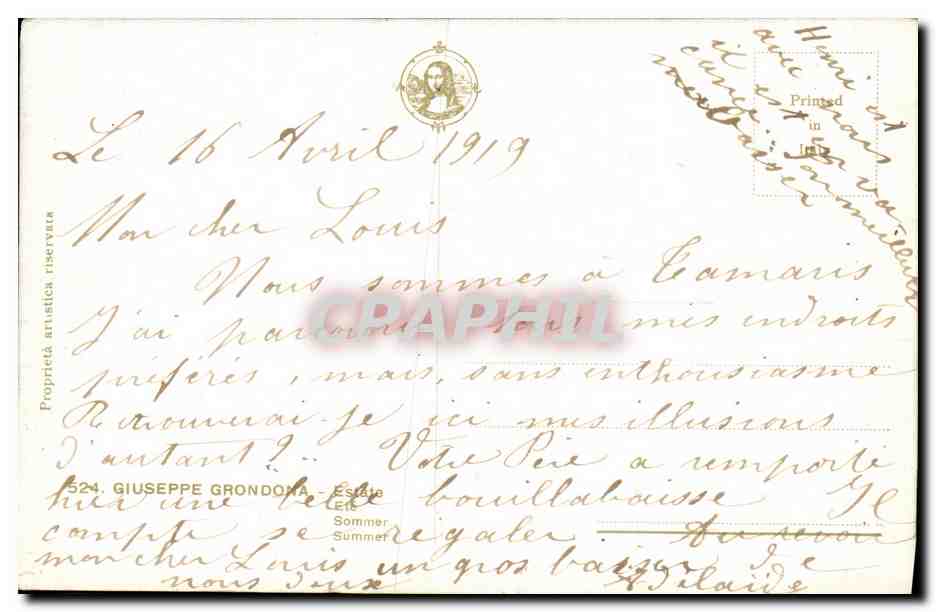 Le 16 Avril 1919
Mon cher Louis
Nous sommes à Tamaris
J'ai parcouru tous mes endroits
préférés, mais, sans enthousiasme
Retrouverai-je ici mes illusions
d'autant?.. Votre Père a remporté
hier une belle bouillabaisse Il
compte se régaler Au revoir
mon cher Louis un gros baiser de
nous deux Adélaïde
Henri est
avec nous
il est en va
cances. Son meilleur
baiser
Printed
in
Italy
Proprietà artistica riservata
524. GIUSEPPE GRONDONA - Estate
Eté
Sommer
Summer
CPAPHIL